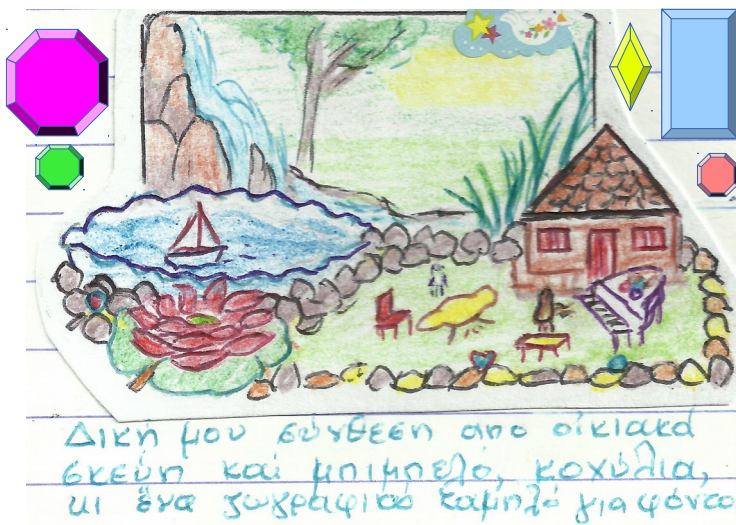 Δική μου σύνθεση απο οἰκιακά
σκεύη και μπιμπελό, κοχύλια,
κι ἕνα ζωγραφικό χαμηλό για φόντο